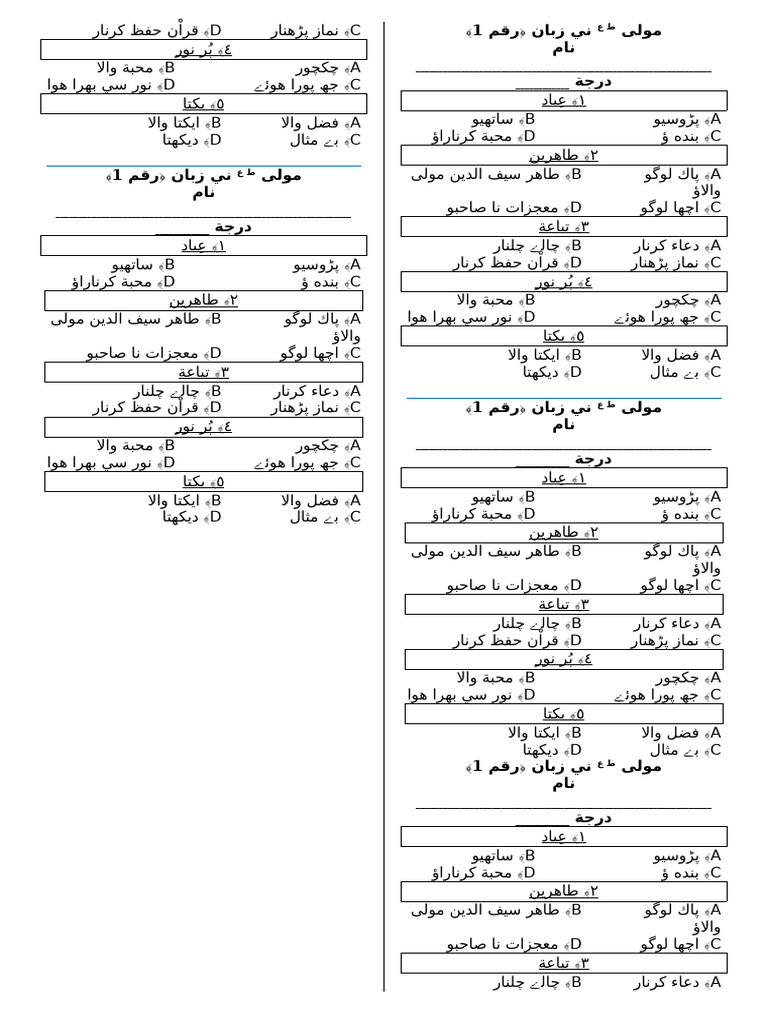 مولى ط ع ني زبان ﴿رقم 1﴾
نام
____________________________________________
درجة ________
١﴾ عِباد
A﴾ پڑوسيو B﴾ ساتهيو
C﴾ بنده ؤ D﴾ محبة كرناراؤ
٢﴾ طاهرين
A﴾ پاك لوگو B﴾ طاهر سيف الدين مولى
والاؤ
C﴾ اچها لوگو D﴾ معجزات نا صاحبو
٣﴾ تباعة
A﴾ دعاء كرنار B﴾ چالے چلنار
C﴾ نماز پڑهنار D﴾ قرأن حفظ كرنار
٤﴾ پُر نور
A﴾ چكچور B﴾ محبة والا
C﴾ جھ پورا هوئے D﴾ نور سي بهرا هوا
٥﴾ يكتا
A﴾ فضل والا B﴾ ايكتا والا
C﴾ بے مثال D﴾ ديكهتا
مولى ط ع ني زبان ﴿رقم 1﴾
نام
____________________________________________
درجة ________
١﴾ عِباد
A﴾ پڑوسيو B﴾ ساتهيو
C﴾ بنده ؤ D﴾ محبة كرناراؤ
٢﴾ طاهرين
A﴾ پاك لوگو B﴾ طاهر سيف الدين مولى
والاؤ
C﴾ اچها لوگو D﴾ معجزات نا صاحبو
٣﴾ تباعة
A﴾ دعاء كرنار B﴾ چالے چلنار
C﴾ نماز پڑهنار D﴾ قرأن حفظ كرنار
٤﴾ پُر نور
A﴾ چكچور B﴾ محبة والا
C﴾ جھ پورا هوئے D﴾ نور سي بهرا هوا
٥﴾ يكتا
A﴾ فضل والا B﴾ ايكتا والا
C﴾ بے مثال D﴾ ديكهتا
مولى ط ع ني زبان ﴿رقم 1﴾
نام
____________________________________________
درجة ________
١﴾ عِباد
A﴾ پڑوسيو B﴾ ساتهيو
C﴾ بنده ؤ D﴾ محبة كرناراؤ
٢﴾ طاهرين
A﴾ پاك لوگو B﴾ طاهر سيف الدين مولى
والاؤ
C﴾ اچها لوگو D﴾ معجزات نا صاحبو
٣﴾ تباعة
A﴾ دعاء كرنار B﴾ چالے چلنار
C﴾ نماز پڑهنار D﴾ قرأن حفظ كرنار
٤﴾ پُر نور
A﴾ چكچور B﴾ محبة والا
C﴾ جھ پورا هوئے D﴾ نور سي بهرا هوا
٥﴾ يكتا
A﴾ فضل والا B﴾ ايكتا والا
C﴾ بے مثال D﴾ ديكهتا
مولى ط ع ني زبان ﴿رقم 1﴾
نام
____________________________________________
درجة ________
١﴾ عِباد
A﴾ پڑوسيو B﴾ ساتهيو
C﴾ بنده ؤ D﴾ محبة كرناراؤ
٢﴾ طاهرين
A﴾ پاك لوگو B﴾ طاهر سيف الدين مولى
والاؤ
C﴾ اچها لوگو D﴾ معجزات نا صاحبو
٣﴾ تباعة
A﴾ دعاء كرنار B﴾ چالے چلنار
C﴾ نماز پڑهنار D﴾ قرأن حفظ كرنار
٤﴾ پُر نور
A﴾ چكچور B﴾ محبة والا
C﴾ جھ پورا هوئے D﴾ نور سي بهرا هوا
٥﴾ يكتا
A﴾ فضل والا B﴾ ايكتا والا
C﴾ بے مثال D﴾ ديكهتا